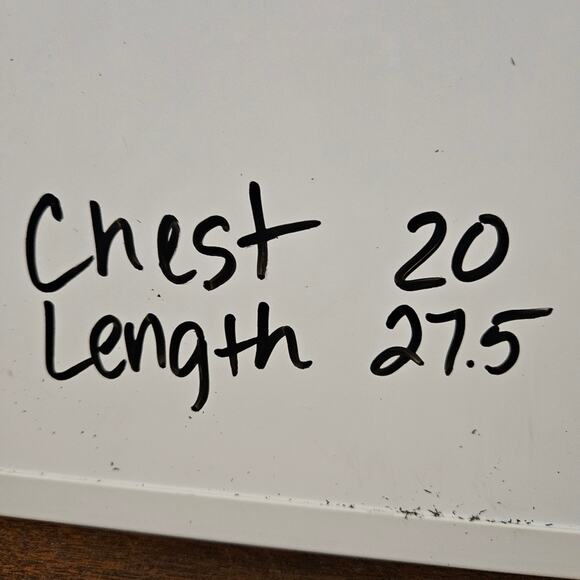 Chest 20
Length 27.5